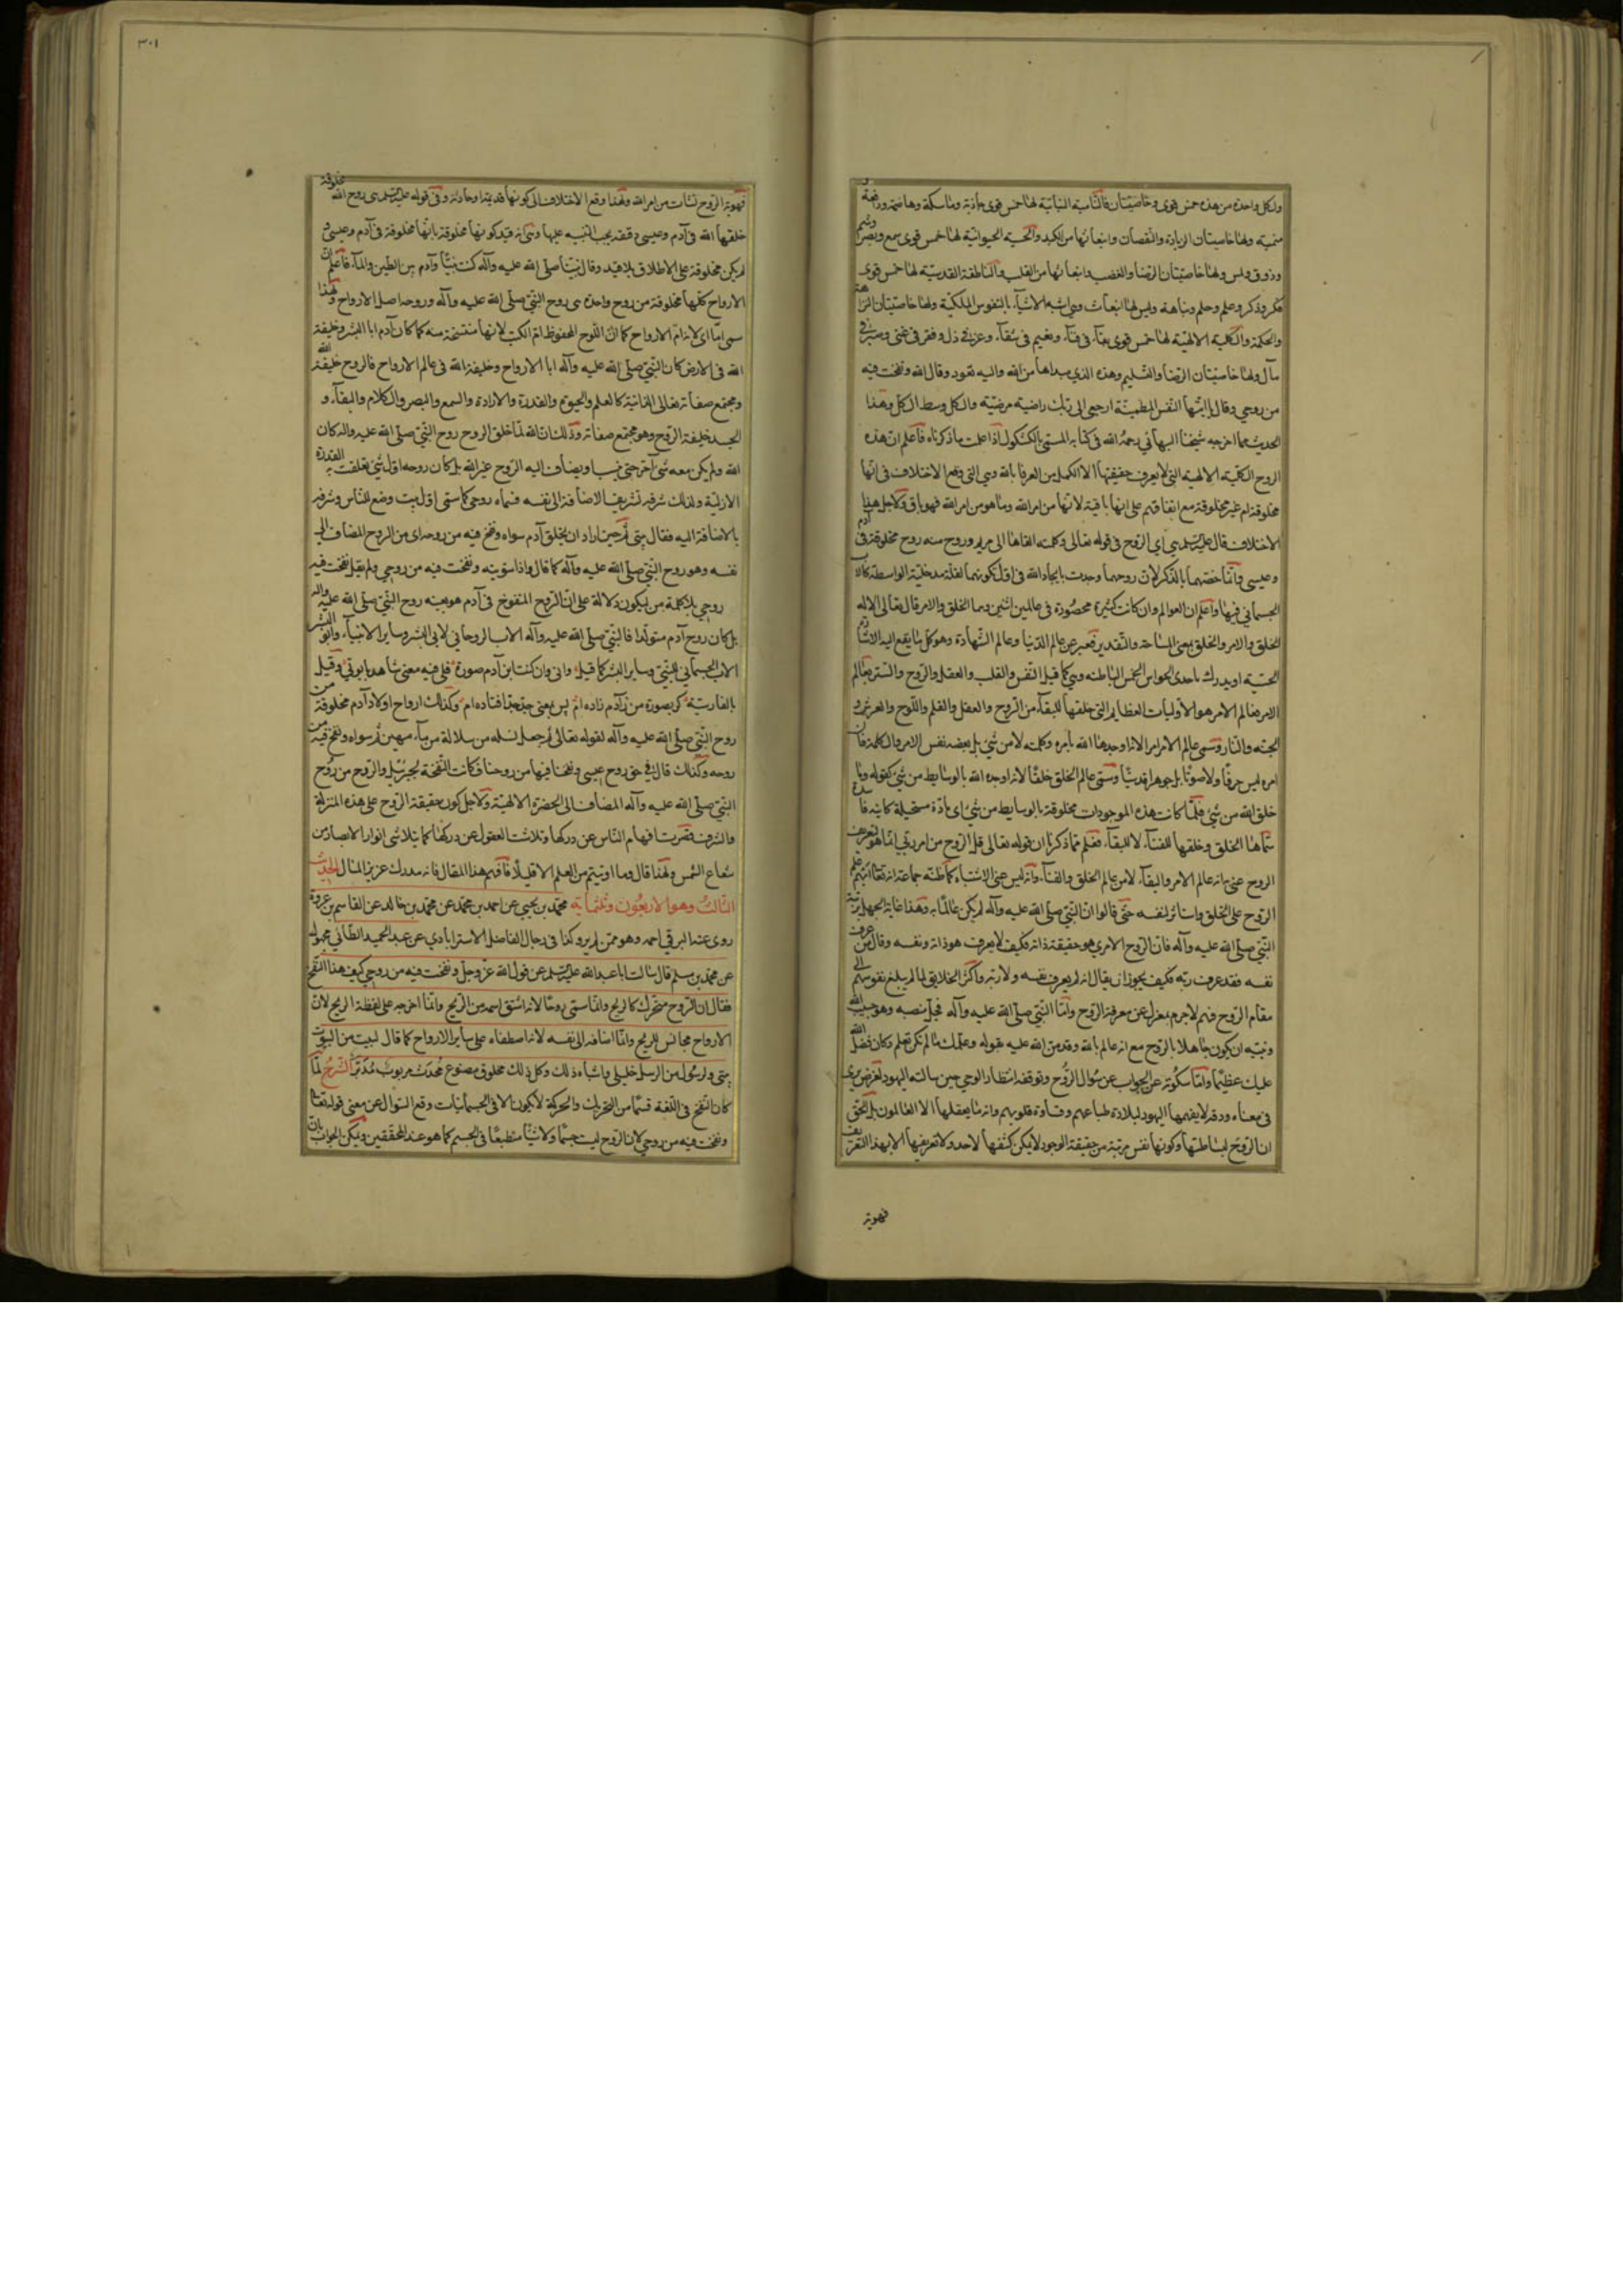 ولكل واحدة من هذه خمس قوى وخاصيتان فالنامية النباتية لها خمس قوى جاذبة وماسكة وهاضمة ودافعة و
منمية ولها خاصيتان الزيادة والنقصان وانبعاثها من الكبد والحسية الحيوانية لها خمس قوى سمع وبصر وشم
وذوق ولمس ولها خاصيتان الرضا والغضب وانبعاثها من القلب والناطقة القدسية لها خمس قوى
فكر وذكر وعلم وحلم ونباهة وليس لها انبعاث وهي اشبه الاشياء بالنفوس الملكية ولها خاصيتان النزاهة
والحكمة والكلية الالهية لها خمس قوى بقاء في فناء ونعيم في شقاء وعز في ذل وفقر في غنى وصبر في
ولها خاصيتان الرضا والتسليم وهذه الذي مبداها من الله واليه تعود وقال الله ونفخت فيه
من روحي وقال يا ايتها النفس المطمئنة ارجعي الى ربك راضية مرضية والكل وسط الكل وهذا
الحديث مما اخرجه شيخنا البهائي رحمه الله في كتابه المسمى بالكشكول اذا علمت ما ذكرناه فاعلم ان هذه
الروح الكلية الالهية التي لا يعرف حقيقتها الا الكملين العرفا بالله وهي التي وقع الاختلاف في انها
مخلوقة ام غير مخلوقة مع اتفاقهم على انها باقية لانها من امر الله وما هو من امر الله فهو باق ولاجل هذا
الاختلاف قال عليه السلم اي الروح في قوله تعالى وكلمته القاها الى مريم وروح منه روح مخلوقة في آدم
وعيسى وانما خصهما بالذكر لان روحهما وجدت بايجاد الله في اول كونهما لقلة مدخلية الواسطة كالاب
الجسماني فيها واعلم ان العوالم وان كانت كثيرة محصورة في عالمين اثنين وهما الخلق والامر قال تعالى الا له
الخلق والامر والخلق بمعنى المساحة والتقدير فعبر عن عالم الدنيا وعالم الشهادة وهو كل ما يقع اليه الاشارة
الحسية او يدرك باحدى الحواس الخمس الباطنة وهي كما قيل النفس والقلب والعقل والروح والسر بعالم
الامر فعالم الامر هو الاوليات العظايم التي خلقها للبقاء من الروح والعقل والقلم واللوح والعرش و
الجنة والنار وسمى عالم الامر امرا لانه اوجدها الله بامره وكلمته لا من شئ بل بعضه نفس الامر والكلمة فان
امره ليس حرفا ولا صوتا بل جوهرا قدسيا وسمى عالم الخلق خلقا لانه اوجده الله بالوسايط من شئ كقوله وما
خلق الله من شئ فلما كانت هذه الموجودات مخلوقة بالوسايط من شئ اي مادة مستحيلة كاينة فاسدة
سماها الخلق وخلقها للفناء لا للبقاء فعلم مما ذكرنا ان قوله تعالى قل الروح من امر ربي انما هو لتعريف
الروح عني بانه عالم الامر والبقاء لا من عالم الخلق والفناء وانه ليس عنى الاشتباه كما ظنه جماعة انه تعالى ابهم علم
الروح على الخلق واستاثر لنفسه حتى قالوا ان النبي صلى الله عليه وآله لم يكن عالما به وهذا غاية الجهل برتبة
النبي صلى الله عليه وآله فان الروح الامري هو حقيقة ذاته فكيف لا يعرف هو ذاته ونفسه وقال من عرف
نفسه فقد عرف ربه فكيف يجوز ان يقال انه لم يعرف نفسه ولا ربه واكثر الخلايق لما لم يبلغ نفوسهم الى
مقام الروح فهم لا جرم بمعزل عن معرفة الروح واما النبي صلى الله عليه وآله فجل منصبه وهو حبيب الله
ونبيه ان يكون جاهلا بالروح مع انه عالم بالله وقد من الله عليه بقوله وعلمك ما لم تكن تعلم وكان فضل الله
عليك عظيما واما سكوته عن الجواب عن سؤال الروح وتوقفه انتظار الوحي حين سالته اليهود لغرض يرى
في معناه ودقة لا يفهمها اليهود لبلادة طباعهم وقساوة قلوبهم وانه ما يعقلها الا العالمون بل الحق
ان الروح لبساطتها وكونها نفس مرتبة من حقيقة الوجود لا يمكن كشفها لاحد ولا تعريفها الا بهذا التعريف
فهوية
٣٠١
فهوية الروح نشات من امر الله ولهذا وقع الاختلاف الى كونها قديمة او حادثة وفي قوله عليه السلم هي روح الله مخلوقة
خلقها الله في آدم وعيسى دقيقة يجب التنبيه عليها وهي انه قيد كونها مخلوقة بانها مخلوقة في آدم وعيسى و
لم يكن مخلوقة على الاطلاق بلا قيد وقال نبينا صلى الله عليه وآله كنت نبيا وآدم بين الطين والماء فاعلم ان
الارواح كلها مخلوقة من روح واحدة هي روح النبي صلى الله عليه وآله وروحه اصل الارواح ولهذا
سمى اما اي لانه ام الارواح كما ان اللوح المحفوظ ام الكتب لانها منتسخة منه كما كان آدم ابا البشر وخليفة
الله في الارض كان النبي صلى الله عليه وآله ابا الارواح وخليفة الله في عالم الارواح فالروح خليفة الله
ومجتمع صفاته تعالى الذاتية كالعلم والحيوة والقدرة والارادة والسمع والبصر والكلام والبقاء و
الجسد خليفة الروح وهو مجتمع صفاته وذلك ان الله لما خلق الروح روح النبي صلى الله عليه وآله كان
الله ولم يكن معه شئ آخر حتى ينسب او يضاف اليه الروح غير الله بل كان روحه اول شئ تعلقت به القدرة
الازلية ولذلك شرفه تشريف الاضافة الى نفسه فسماه روحي كما سمى اول بيت وضع للناس وشرفه
بالاضافة اليه فقال بيتي ثم حين اراد ان يخلق آدم سواه ونفخ فيه من روحه اي من الروح المضاف الى
نفسه وهو روح النبي صلى الله عليه وآله كما قال واذا سويته ونفخت فيه من روحي ولم يقل نفخت فيه
روحي بلا كلمة من ليكون دلالة على ان الروح المنفوخ في آدم هو بعينه روح النبي صلى الله عليه وآله
بل كان روح آدم متولدا فالنبي صلى الله عليه وآله الاب الروحاني لابي البشر وساير الانبياء وابو البشر
الاب الجسماني للنبي وساير البشر كما قيل واني وان كنت ابن آدم صورة فلي فيه معنى شاهد بابوتي وقيل
بالفارسية كر بصورت من ز آدم زاده ام پس بمعنى جد جد افتاده ام وكذلك ارواح اولاد آدم مخلوقة من
روح النبي صلى الله عليه وآله لقوله تعالى ثم جعل نسله من سلالة من ماء مهين ثم سواه ونفخ فيه من
روحه وكذلك قال في حق روح عيسى ونفخنا فيها من روحنا فكانت النفخة لجبرئيل والروح من روح
النبي صلى الله عليه وآله المضاف الى الحضرة الالهية ولاجل كون حقيقة الروح على هذه المنزلة
والشرف قصرت افهام الناس عن دركها وتلاشت العقول عن دركها كما يتلاشى انوار الابصار من
شعاع الشمس ولهذا قال وما اوتيتم من العلم الا قليلا فافهم هذا المقال فانه مدرك عزيز المنال الحديث
الثالث وهو الاربعون وثلثمائة محمد بن يحيى عن احمد بن محمد عن محمد بن خالد عن القاسم بن عروة
روى عنه البرقي احمد وهو ممن لم يرو كذا في رجال الفاضل الاسترابادي عن عبد الحميد الطائي مجهول
عن محمد بن مسلم قال سالت ابا عبد الله عليه السلم عن قول الله عز وجل ونفخت فيه من روحي كيف هذا النفخ
فقال ان الروح متحرك كالريح وانما سمى روحا لانه اشتق اسمه من الريح وانما اخرجه على لفظة الريح لان
الارواح مجانس للريح وانما اضافه الى نفسه لانه اصطفاه على ساير الارواح كما قال لبيت من البيوت
بيتي ولرسول من الرسل خليلي واشباه ذلك وكل ذلك مخلوق مصنوع محدث مربوب مدبر الشرح لما
كان النفخ في اللغة قسما من التحريك والحركة لا يكون الا في الجسمانيات وقع السؤال عن معنى قوله تعالى
ونفخت فيه من روحي لان الروح ليست جسما ولا شيئا منطبعا في الجسم كما هو عند المحققين ويمكن الجواب بان